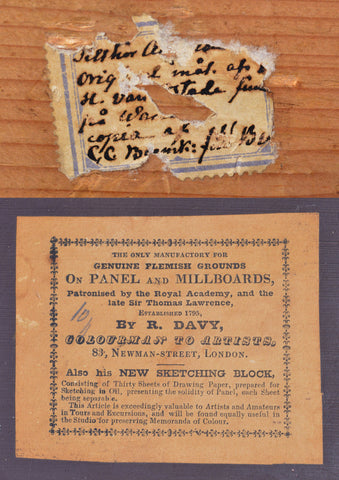 original mål. af
H. van
på
copia af
C C
THE ONLY MANUFACTORY FOR
GENUINE FLEMISH GROUNDS
ON PANEL AND MILLBOARDS,
Patronised by the Royal Academy, and the
late Sir Thomas Lawrence,
ESTABLISHED 1795,
BY R. DAVY,
COLOURMAN TO ARTISTS,
83, NEWMAN-STREET, LONDON.
Also his NEW SKETCHING BLOCK,
Consisting of Thirty Sheets of Drawing Paper, prepared for
Sketching in Oil, presenting the solidity of Panel, each Sheet
being separable.
This Article is exceedingly valuable to Artists and Amateurs
in Tours and Excursions, and will be found equally useful in
the Studio for preserving Memoranda of Colour.